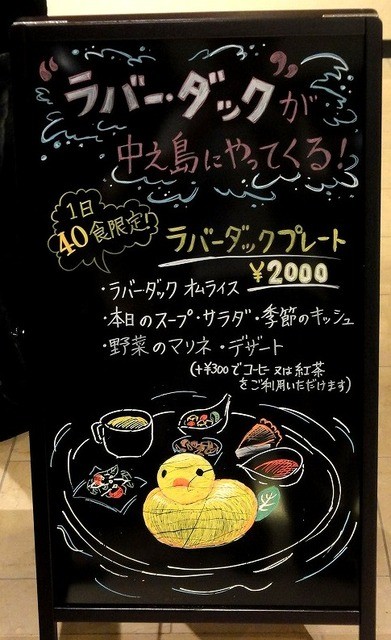 “ラバー・ダック”が
中之島にやってくる!
1日
40食限定!
ラバーダックプレート
¥2000
・ラバーダック オムライス
・本日のスープ・サラダ・季節のキッシュ
・野菜のマリネ・デザート
(+¥300でコーヒー又は紅茶
をご利用いただけます)